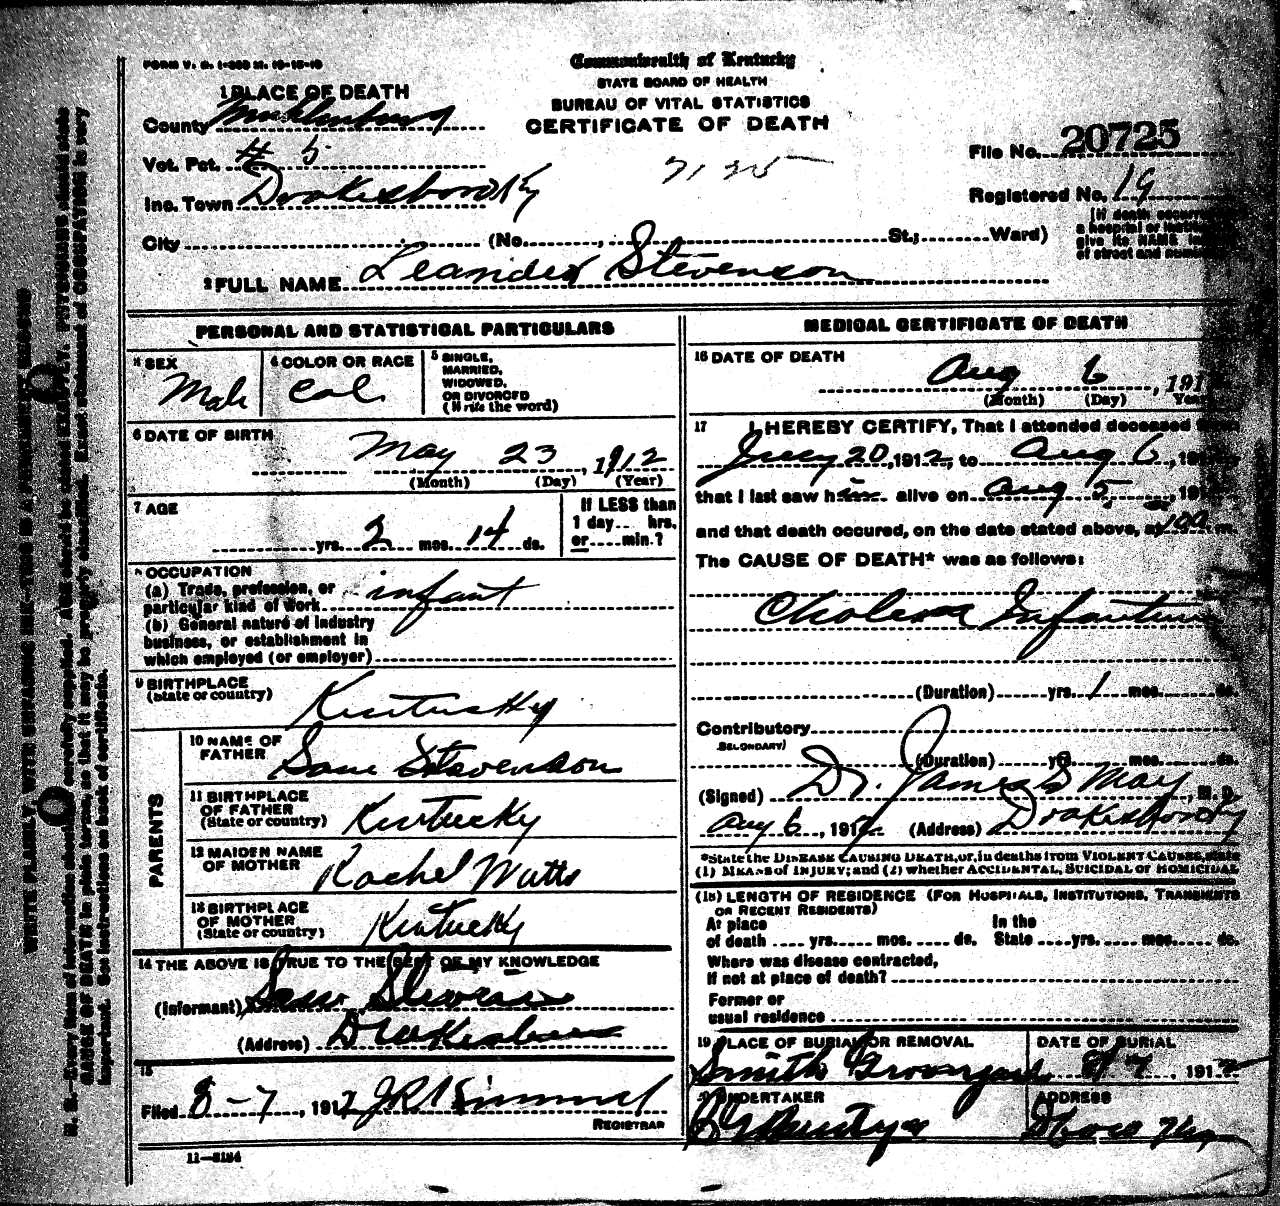 FORM V. S. 1-200 M. 10-15-10
Commonwealth of Kentucky
STATE BOARD OF HEALTH
BUREAU OF VITAL STATISTICS
CERTIFICATE OF DEATH
1 PLACE OF DEATH
County Muhlenburg
Vot. Pct. # 5
Inc. Town Drakesboro Ky
City (No. , St.; Ward)
File No. 20725
Registered No. 19
[If death occurred
a hospital or
give its NAME
of street and number
2 FULL NAME Leander Stevenson
PERSONAL AND STATISTICAL PARTICULARS
3 SEX Male
4 COLOR OR RACE Col
5 SINGLE, MARRIED, WIDOWED, OR DIVORCED (Write the word)
6 DATE OF BIRTH May 23, 1912
(Month) (Day) (Year)
7 AGE yrs. 2 mos. 14 ds.
If LESS than 1 day hrs. or min.?
8 OCCUPATION
(a) Trade, profession, or
particular kind of work infant
(b) General nature of industry
business, or establishment in
which employed (or employer)
9 BIRTHPLACE
(State or country) Kentucky
PARENTS
10 NAME OF FATHER Sam Stevenson
11 BIRTHPLACE OF FATHER (State or country) Kentucky
12 MAIDEN NAME OF MOTHER Rachel Watts
13 BIRTHPLACE OF MOTHER (State or country) Kentucky
14 THE ABOVE IS TRUE TO THE BEST OF MY KNOWLEDGE
(Informant) Sam
(Address) Drakesboro
15
Filed 8-7, 1912 J R Kimmel
REGISTRAR
11-8184
MEDICAL CERTIFICATE OF DEATH
16 DATE OF DEATH
Aug 6, 191
(Month) (Day) Year
17 I HEREBY CERTIFY, That I attended deceased
July 20, 1912, to Aug 6, 191
that I last saw him alive on Aug 5, 191
and that death occured, on the date stated above, at 100 m.
The CAUSE OF DEATH* was as follows:
Cholera Infantum
(Duration) yrs. 1 mos. ds.
Contributory
(SECONDARY)
(Duration) yrs. mos. ds.
(Signed) Dr. James S May, M. D.
Aug 6, 1912 (Address) Drakesboro Ky
*State the DISEASE CAUSING DEATH, or, in deaths from VIOLENT CAUSES, state
(1) MEANS of INJURY; and (2) whether ACCIDENTAL, SUICIDAL or HOMICIDAL
(18) LENGTH OF RESIDENCE (FOR HOSPITALS, INSTITUTIONS, TRANSIENTS
OR RECENT RESIDENTS)
At place of death yrs. mos. ds. In the State yrs. mos. ds.
Where was disease contracted,
if not at place of death?
Former or
usual residence
19 PLACE OF BURIAL OR REMOVAL
Smith
DATE OF BURIAL
8 7, 1912
UNDERTAKER
ADDRESS
N. B.—Every item of information should be carefully supplied. AGE should be stated EXACTLY. PHYSICIANS should state
CAUSE OF DEATH in plain terms, so that it may be properly classified. Exact statement of OCCUPATION is very
important. See instructions on back of certificate.
WRITE PLAINLY, WITH UNFADING INK—THIS IS A PERMANENT RECORD